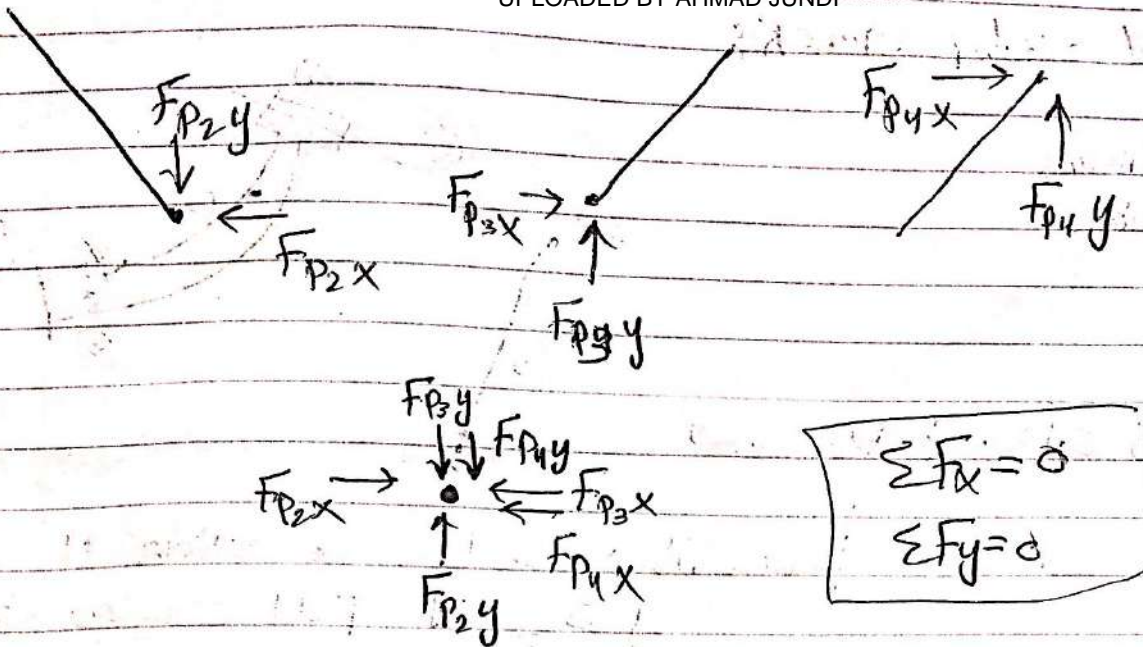 UPLOADED BY AHMAD JUNDI
Fp2y
Fp2x
Fp3x
Fp3y
Fp4x
Fp4y
Fp3y
Fp4y
Fp2x
Fp3x
Fp4x
Fp2y
ΣFx=0
ΣFy=0